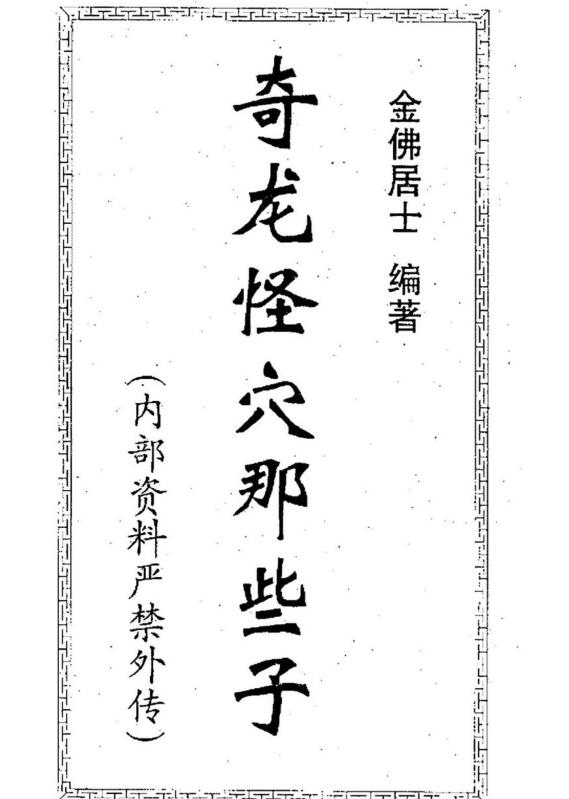 金佛居士 编著
奇龙怪穴那些子
（内部资料严禁外传）